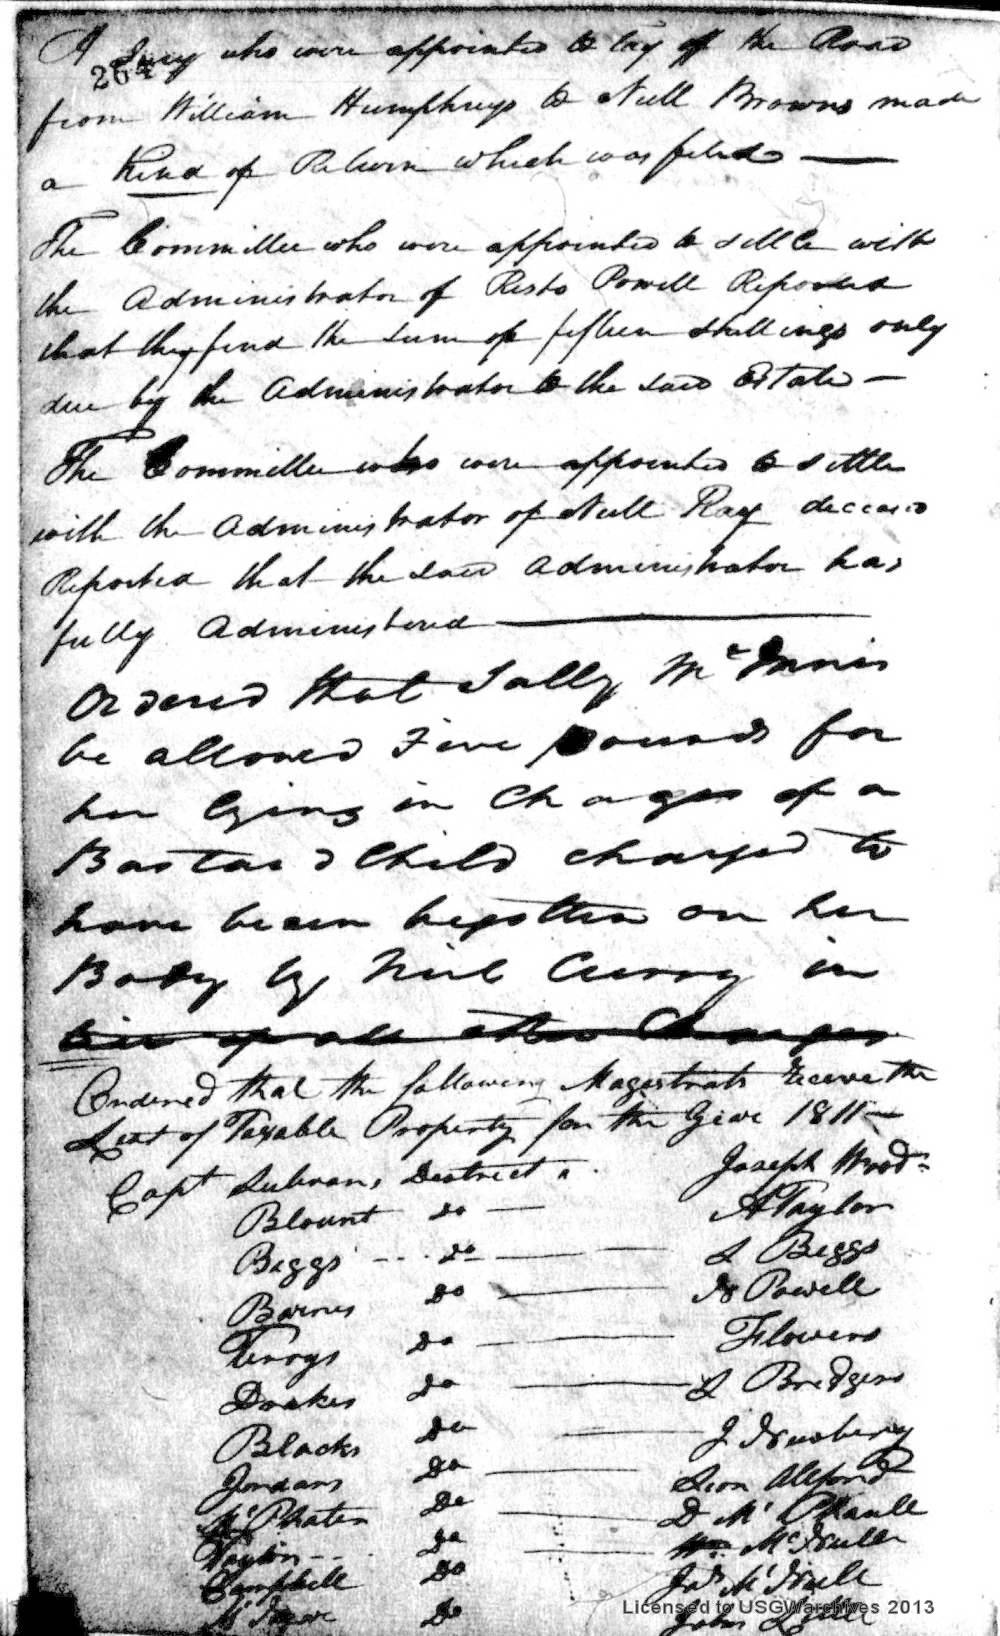 264
A Jury who were appointed to lay off the Road
from William Humphreys to Neill Browns made
a Kind of Return which was filed —
The Committee who were appointed to settle with
the Administrator of Powell Reported
that they find the sum of fifteen shillings only
due by the Administrator to the said Estate —
The Committee who were appointed to settle
with the Administrator of Neill Ray deceased
Reported that the said Administrator has
fully Administered —
Ordered that Sally McInnis
be allowed Five pounds for
her lying in Charges of a
Bastard Child charged to
have been begotten on her
Body by Neil Curry in
lieu of all other Charges
Ordered that the following Magistrats receive the
List of Taxable Property for the Year 1811 —
Capt District Joseph Wood
Blount Do — A Taylor
Biggs Do — Biggs
Barnes Do — Powell
Do — Flowers
Drakes Do — Bridgers
Blacks Do — J
Jordans Do — Alford
McPhaten Do — D Mc
Taylor Do — Wm McNeill
Campbell Do McNeill
Do John
Licensed to USGWarchives 2013